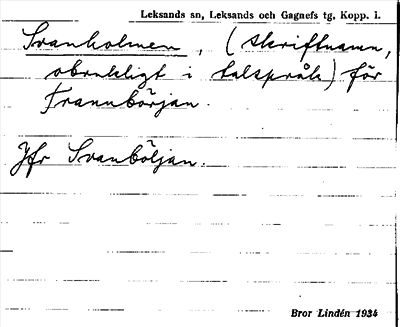 Leksands sn, Leksands och Gagnefs tg, Kopp. l.
Svanholmen, (skriftnamn,
obrukligt i talspråk) för
Frannbörjan.
Jfr Svanböljan.
Bror Lindén 1934